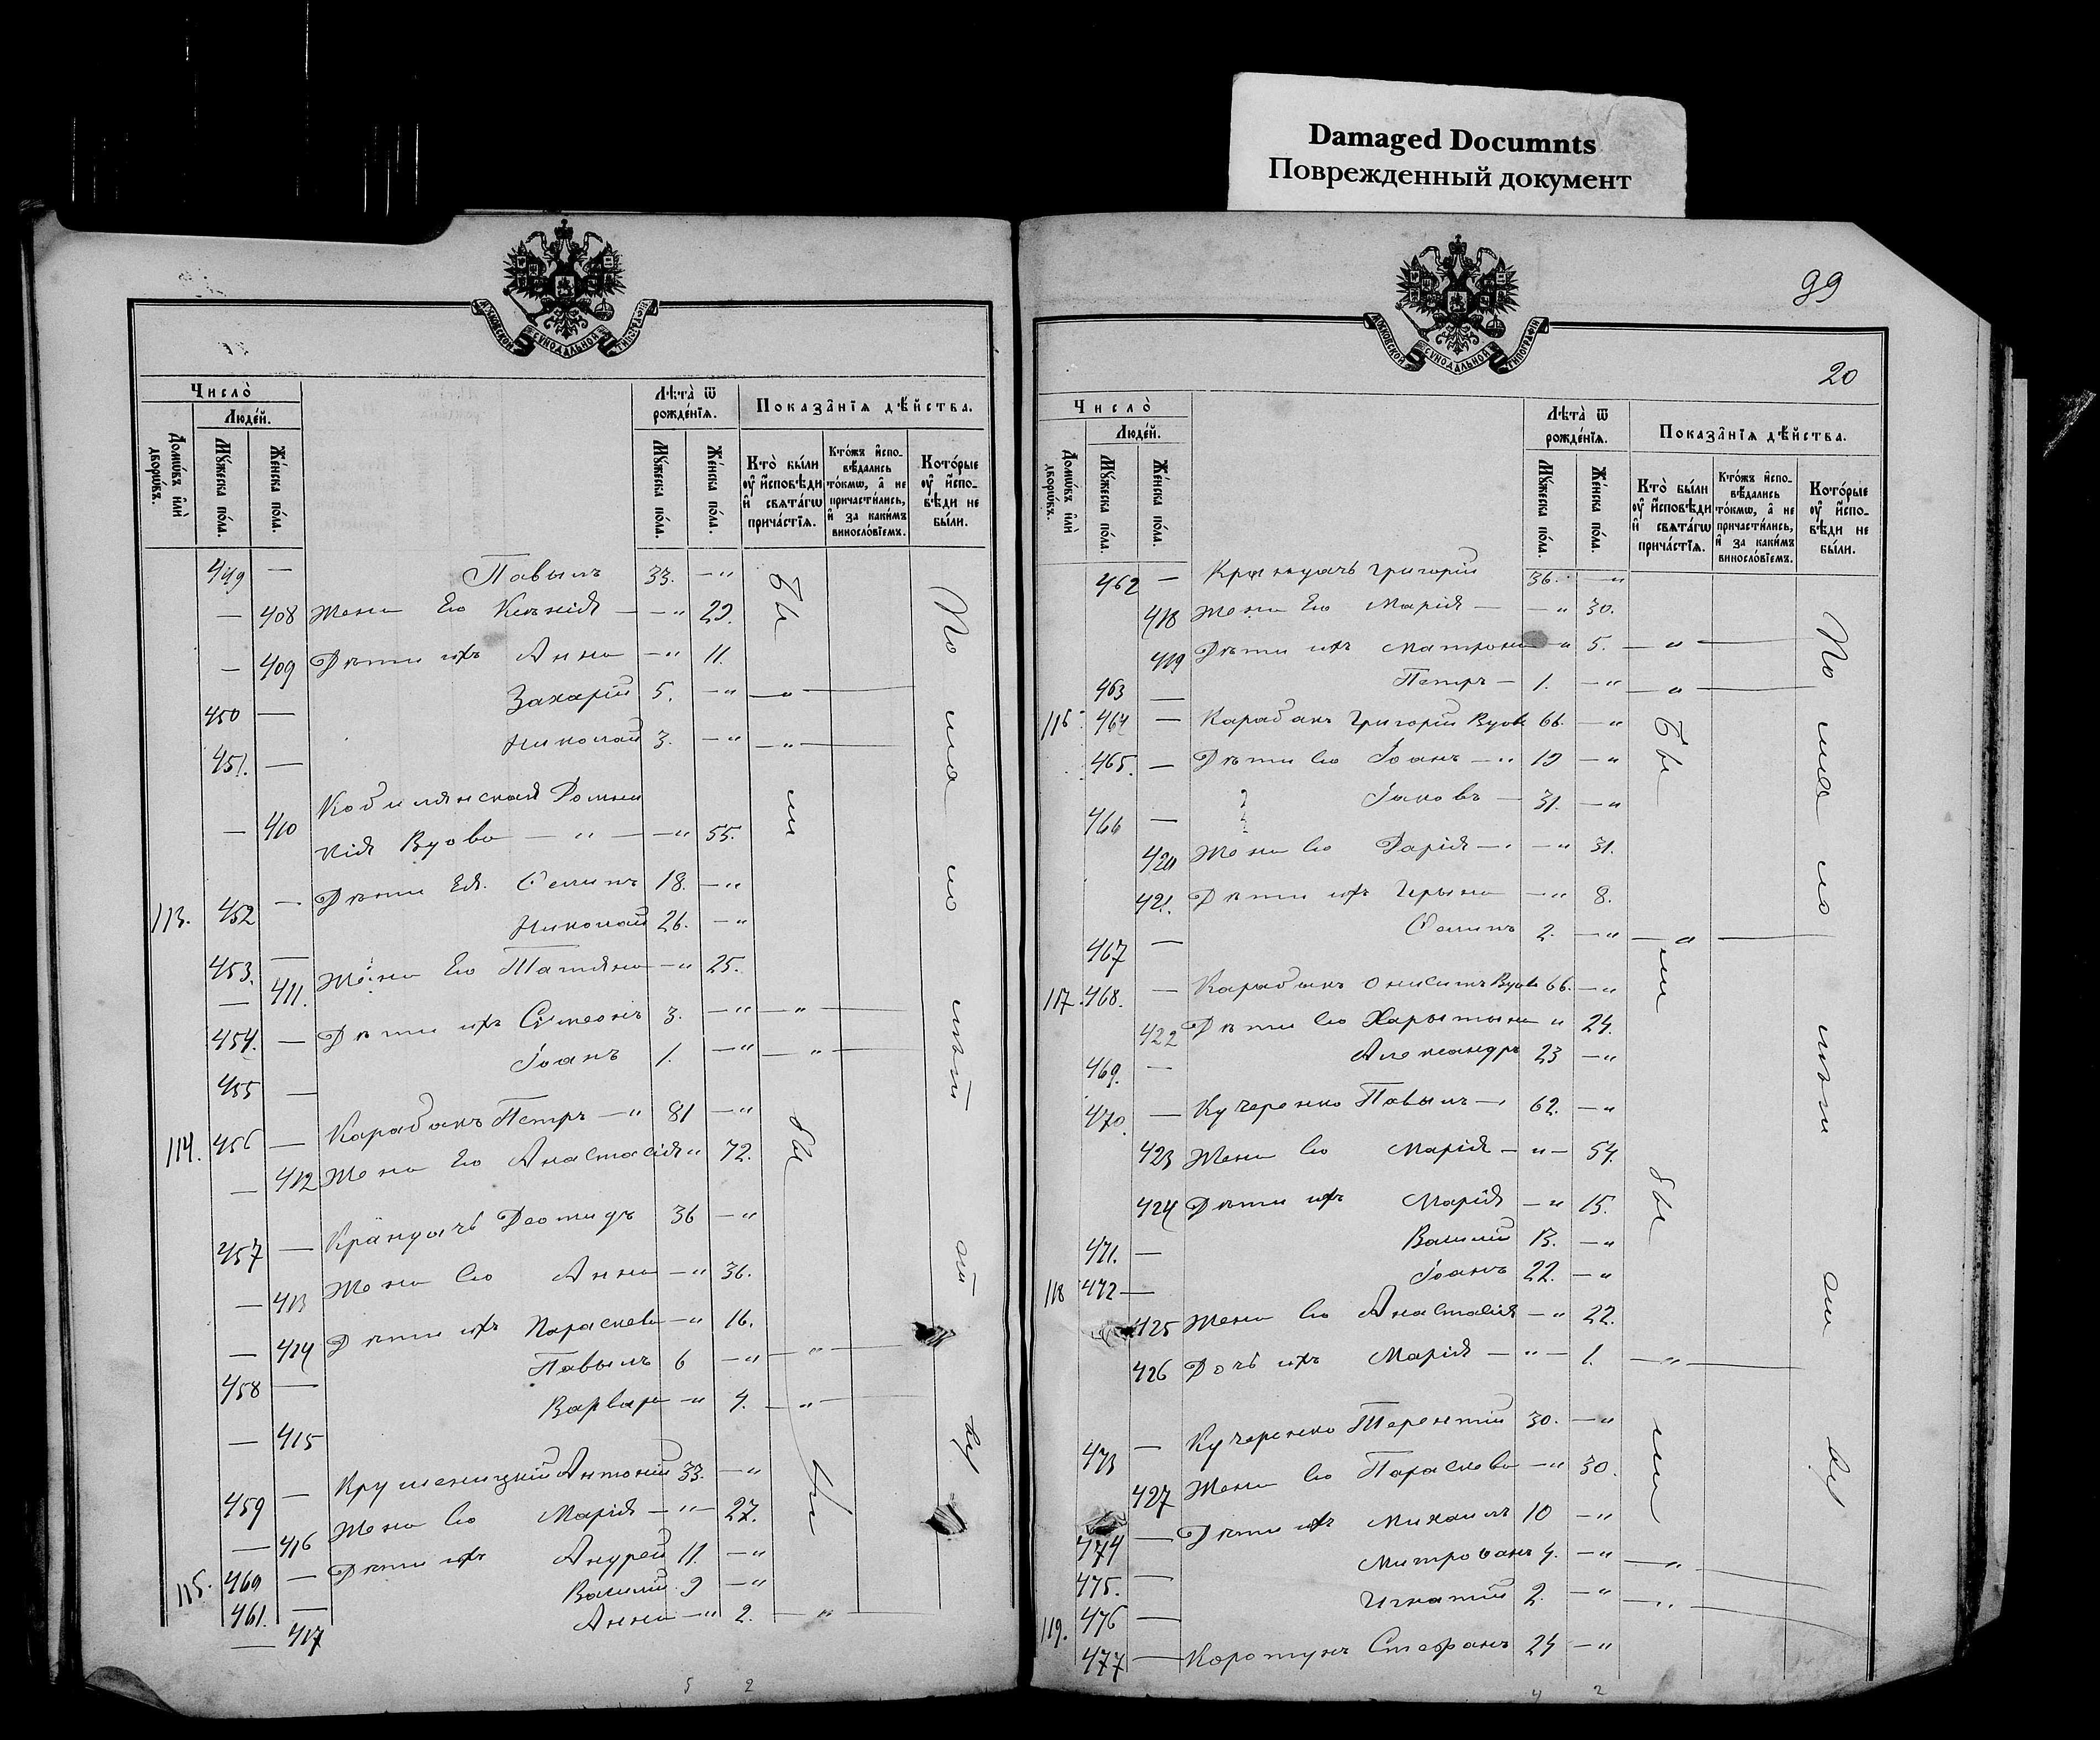 Damaged Documnts
Поврежденный документ
МОСКОВСКОЙ СѴНОДАЛЬНОЙ ТИПОГРАФІИ
Число̀
Люде́й.
Домѡ́въ и҆лѝ дворѡ́въ.
Мꙋ́жеска по́ла.
Же́нска по́ла.
Лѣта̀ ѿ рожде́нїѧ.
Мꙋ́жеска по́ла.
Же́нска по́ла.
Показа̑нїѧ дѣ́йства.
Кто̀ бы́ли ᲂу҆ и҆́сповѣди и҆ свѧта́гѡ прича́стїѧ.
Кто́жъ и҆сповѣ́дались то́кмѡ, а҆ не причасти́лись, и҆ за каки́мъ виносло́вїемъ.
Кото́рые ᲂу҆ и҆́сповѣди не бы́ли.
449 — Павылъ 33. — "
— 408 Жена Его Ксенія — — " 29.
— 409 Дѣти ихъ Анна — " 11.
450 — Захарій 5. — " — " —
451. — Николай 3. — " — " —
Кобилянская Домни
— 410 кія Вдова — " — — " 55.
113. 452 — Дѣти Ея. Филипъ 18. — "
453. — Николай 26. — "
— 411. Жена Его Татіяна — " 25.
454. — Дѣти ихъ Сѵмеонъ 3. — " — " —
455 — Іоанъ 1. — " — " —
114. 456 — Карабанъ Петръ — " 81 — "
— 412 Жена Его Анастасія " 72.
457 — Крандачъ Деомидъ 36 — "
— 413 Жена Его Анна — " 36.
— 414 Дѣти ихъ Параскева — " 16.
458 — Павылъ 6 — " — " —
— 415 Варвара — " 4. — " —
459 — Крушеницкій Антоній 33. — "
— 416 Жена Его Марія — " — 27.
115. 460 — Дѣти ихъ Андрей 11. — "
461. — Василій 9 — "
— 417 Анна — " 2. — " —
Бы
ли
бы
ли
5 2
99
МОСКОВСКОЙ СѴНОДАЛЬНОЙ ТИПОГРАФІИ
20
Число̀
Люде́й.
Домѡ́въ и҆лѝ дворѡ́въ.
Мꙋ́жеска по́ла.
Же́нска по́ла.
Лѣта̀ ѿ рожде́нїѧ.
Мꙋ́жеска по́ла.
Же́нска по́ла.
Показа̑нїѧ дѣ́йства.
Кто̀ бы́ли ᲂу҆ и҆́сповѣди и҆ свѧта́гѡ прича́стїѧ.
Кто́жъ и҆сповѣ́дались то́кмѡ, а҆ не причасти́лись, и҆ за каки́мъ виносло́вїемъ.
Кото́рые ᲂу҆ и҆́сповѣди не бы́ли.
462 — Крандачъ Григорій 36. — "
418 Жена Его Марія — — " 30.
419 Дѣти ихъ Матрона " 5. — " —
463 — Петръ — 1. — " — " —
116 464 — Карабанъ Григорій Вдов 66. — "
465. — Дѣти Его Іоанъ — " 19 — "
466 — Іаковъ — 31. — "
420 Жена Его Дарія — — " 31.
421. Дѣти ихъ Ирына — " 8.
467 — Филипъ 2. — " — " —
117. 468. — Карабанъ Онисимъ Вдов 66. — "
422 Дѣти Его Харытына " 24.
469. — Александръ 23 — "
470. — Кучеренко Павылъ — " 62. — "
423 Жена Его Марія — " — 54.
424 Дѣти ихъ Марія — " 15.
471. — Василій 13. — "
118 472 — Іоанъ 22. — "
425 Жена Его Анастасія — " 22.
426 Дочь ихъ Марія — " — 1. — " —
473 — Кучеренко Терентій 30. — "
427 Жена Его Параскева — " 30.
474 — Дѣти ихъ Михаилъ 10 — "
475. — Митрофанъ 4. — " — " —
476 — Игнатій 2. — " — " —
119. 477 — Коротунъ Стефанъ 24 — "
Бы
ли
бы
ли
4 2